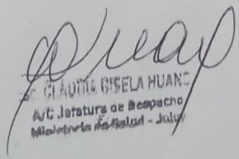 CLAUDIA GISELA HUANC
A/C Jefatura de Despacho
Ministerio de Salud - Jujuy